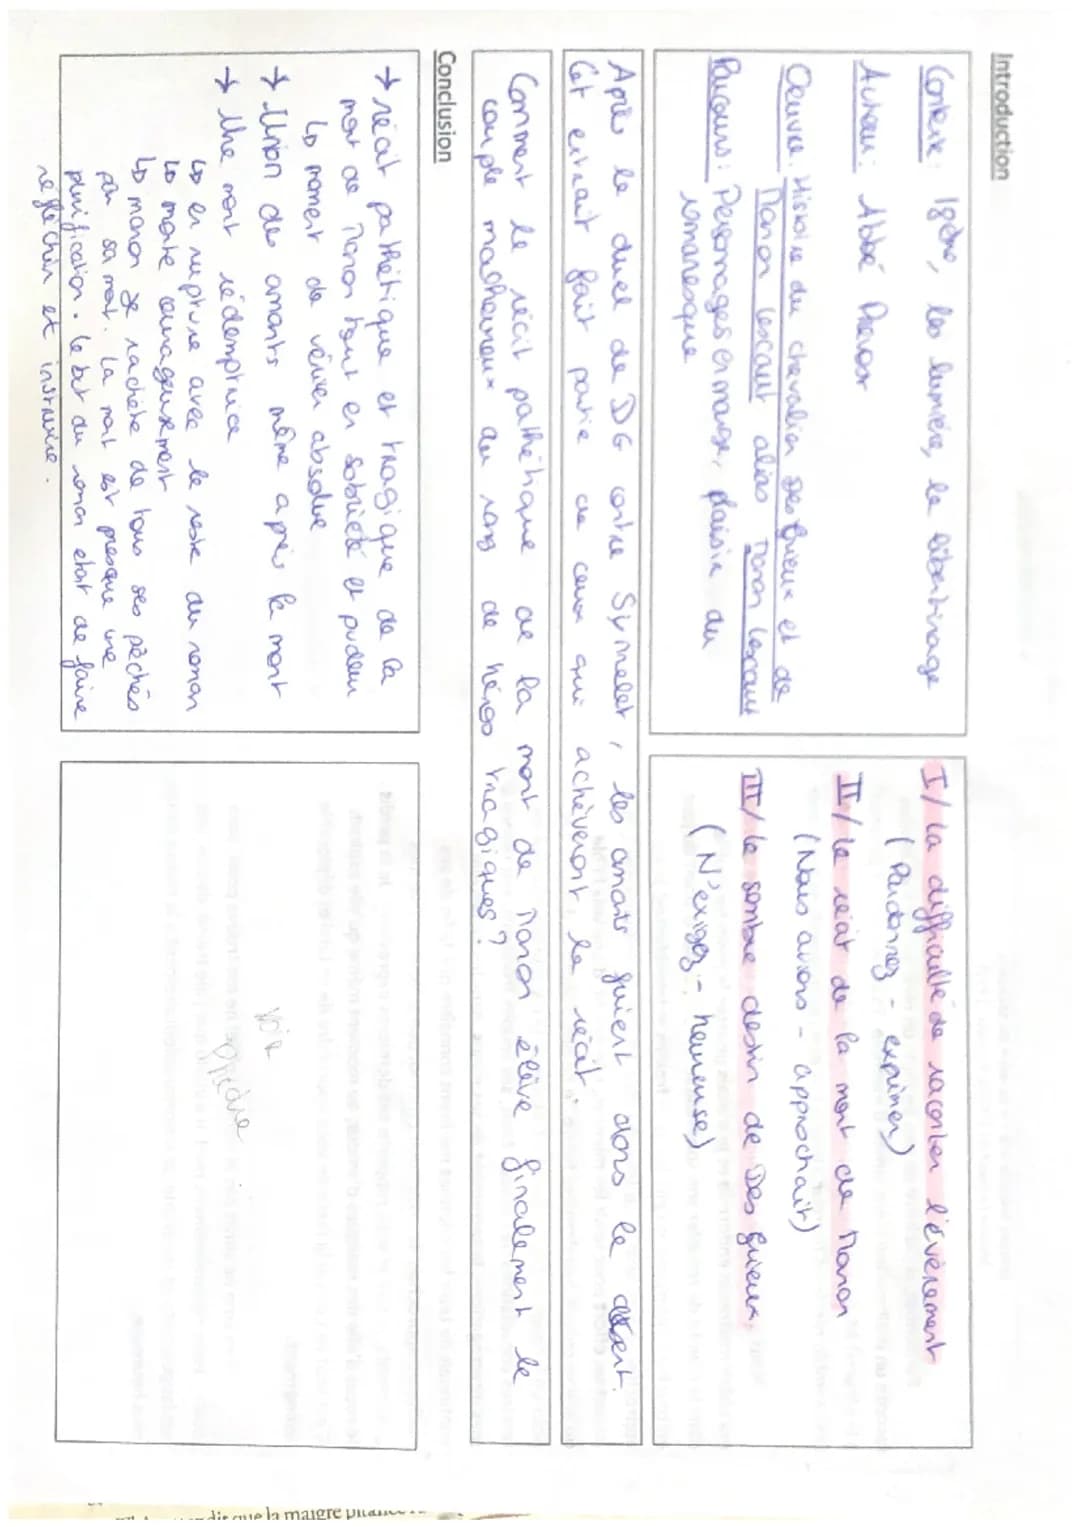 Introduction
Contexte : 18ème, les lumière, le libertinage
Auteur : Abbé Prévost
Oeuvre : Histoire du chevalier Des Grieux et de
Manon Lescaut alias Manon Lescaut
Parcours : Personnages en marge, plaisir du
romanesque
I/ La difficulté de raconter l'évènement
(Pardonnez - exprimer)
II/ Le récit de la mort de Manon
(Nous avions - approchait)
III/ Le sombre destin de Des Grieux,
(N'exigez - heureuse)
Après le duel de DG contre Synnelet, les amants fuient dans le désert.
Cet extrait fait partie de ceux qui achèveront le récit.
Comment le récit pathétique de la mort de Manon élève finalement le
couple malheureux au rang de héros tragiques ?
Conclusion
→ récit pathétique et tragique de la
mort de Manon tout en sobriété et pudeur
↳ moment de vérité absolue
→ Union des amants même après la mort
→ Une mort rédemptrice
↳ en rupture avec le reste du roman
↳ morte courageusement
↳ manon se rachète de tous ses péchés
par sa mort. La mort est presque une
purification. Le but du roman était de faire
réfléchir et instruire.
Voir
Phèdre
dit que la maigre